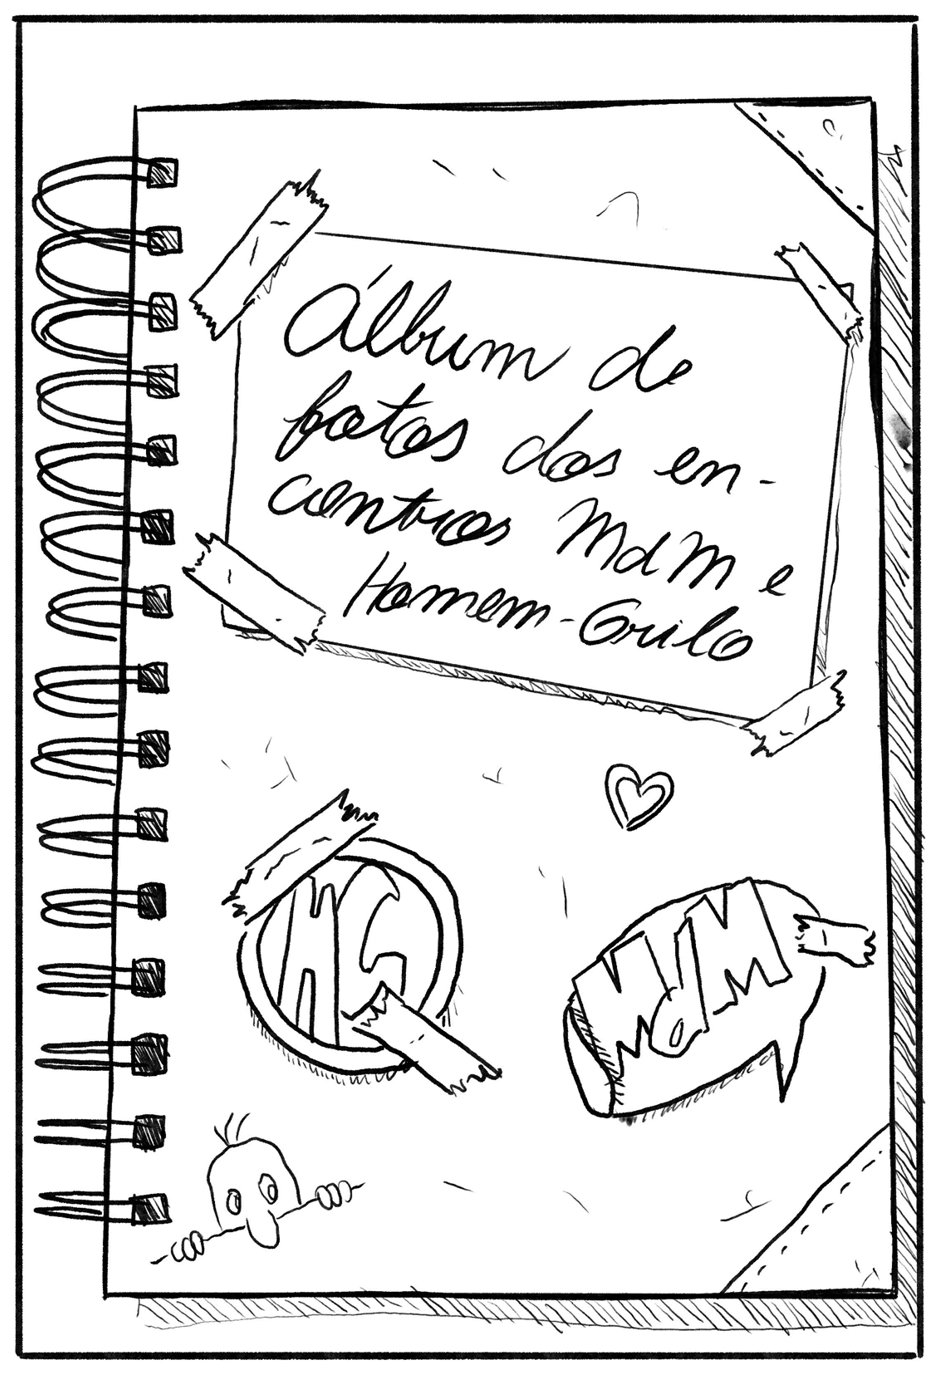 Álbum de
fotos dos en-
contros MdM e
Homem-Grilo
HG
MdM